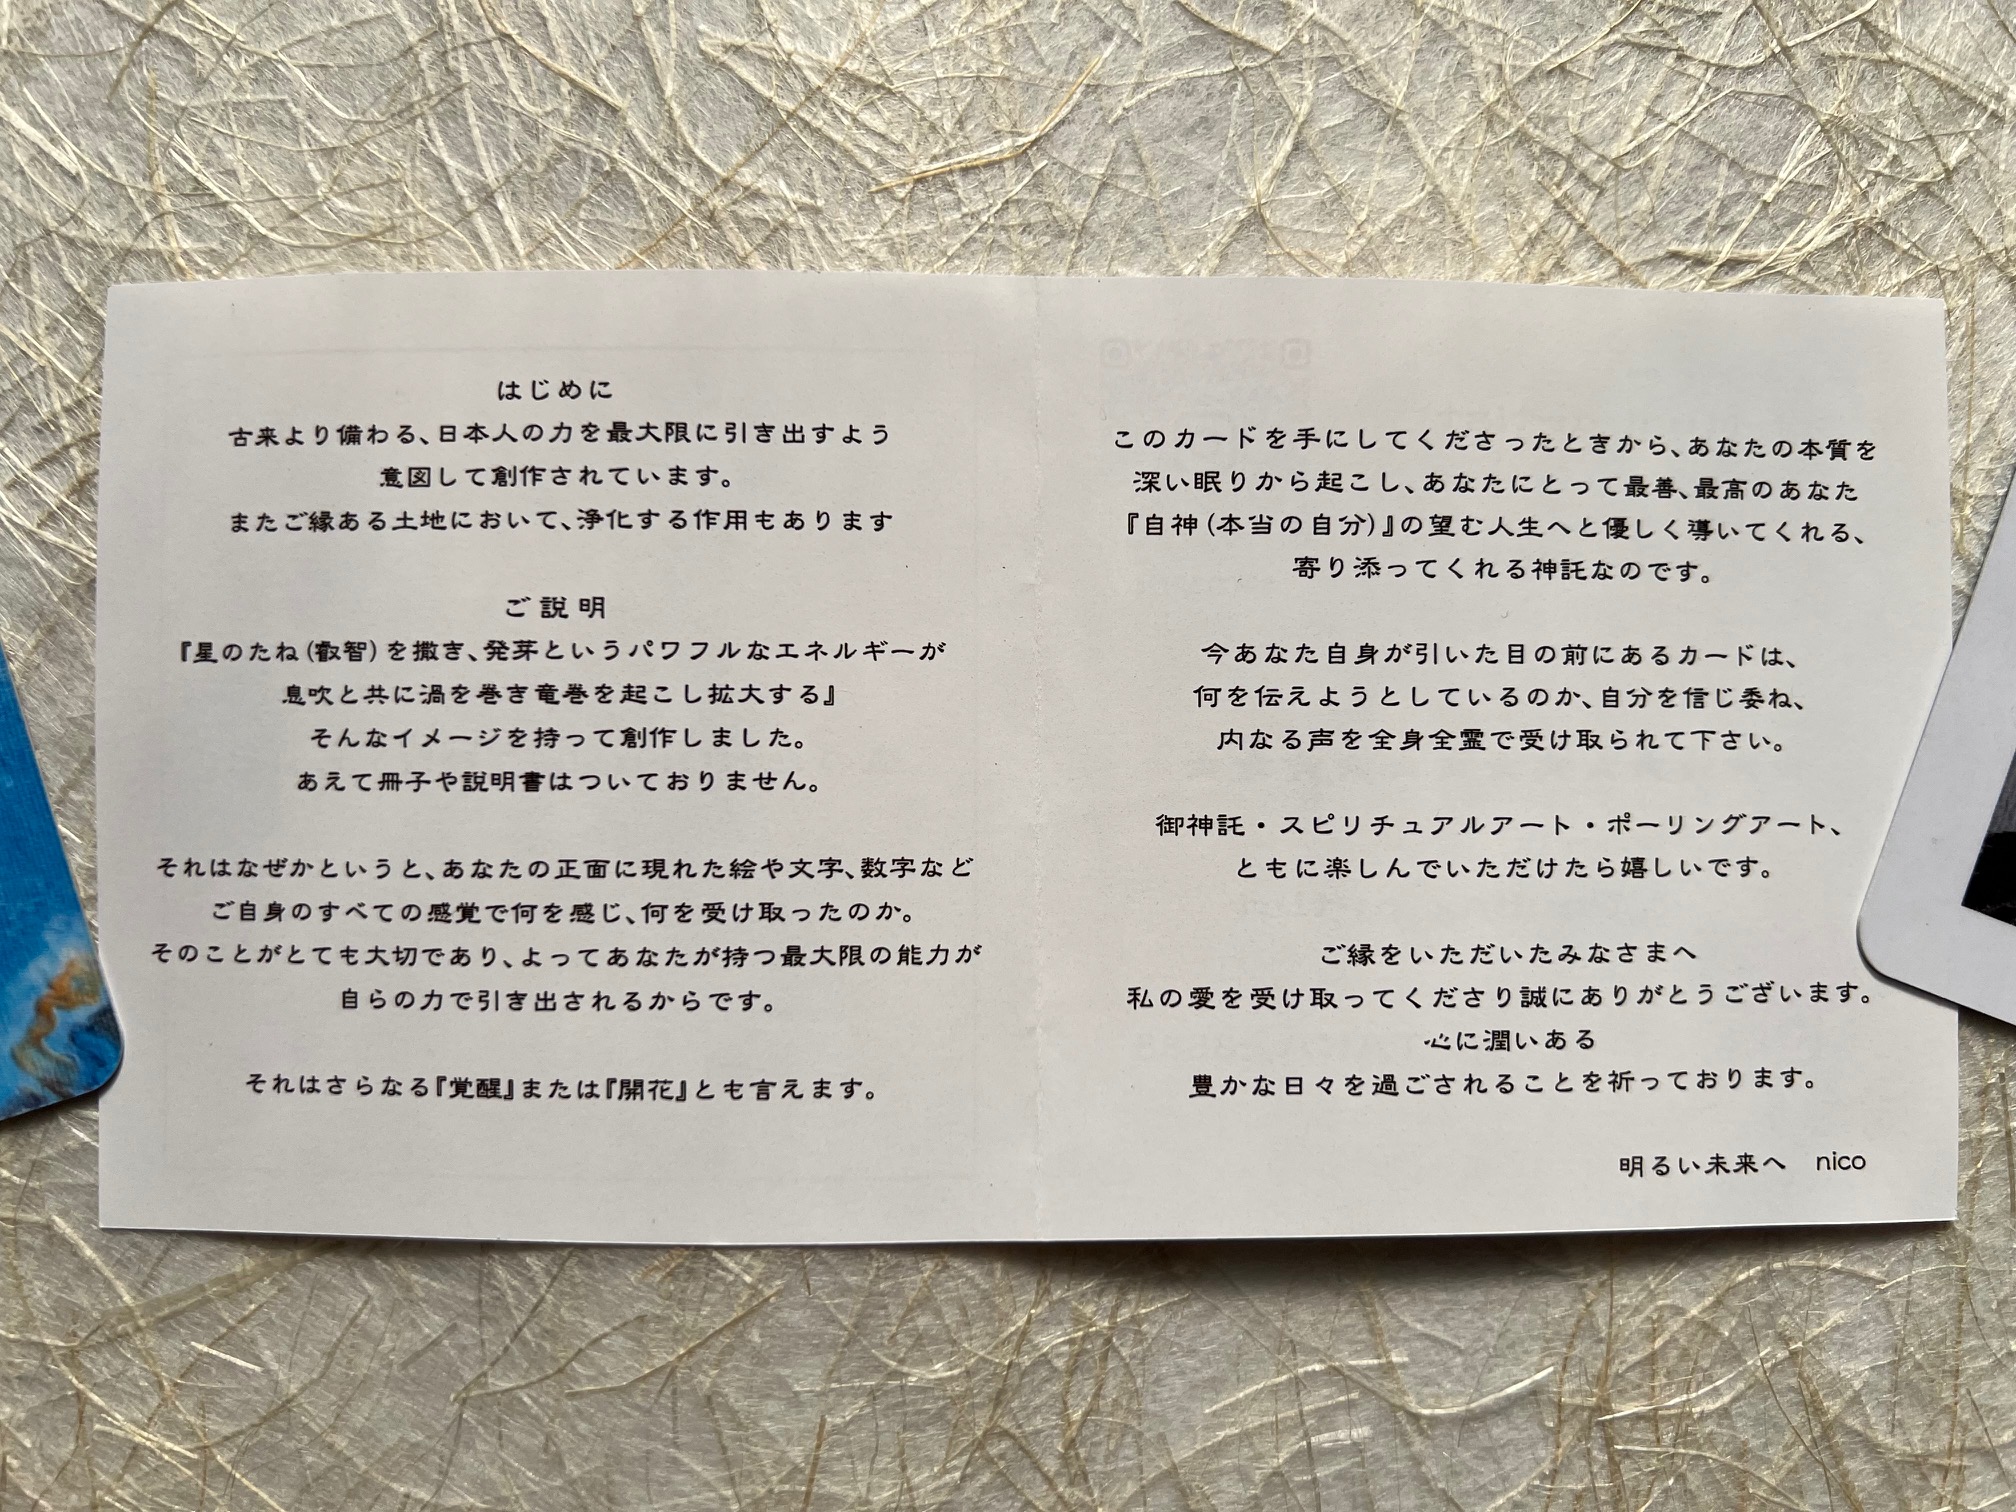 はじめに
古来より備わる、日本人の力を最大限に引き出すよう
意図して創作されています。
またご縁ある土地において、浄化する作用もあります
ご説明
『星のたね(叡智)を撒き、発芽というパワフルなエネルギーが
息吹と共に渦を巻き竜巻を起こし拡大する』
そんなイメージを持って創作しました。
あえて冊子や説明書はついておりません。
それはなぜかというと、あなたの正面に現れた絵や文字、数字など
ご自身のすべての感覚で何を感じ、何を受け取ったのか。
そのことがとても大切であり、よってあなたが持つ最大限の能力が
自らの力で引き出されるからです。
それはさらなる『覚醒』または『開花』とも言えます。
このカードを手にしてくださったときから、あなたの本質を
深い眠りから起こし、あなたにとって最善、最高のあなた
『自神(本当の自分)』の望む人生へと優しく導いてくれる、
寄り添ってくれる神託なのです。
今あなた自身が引いた目の前にあるカードは、
何を伝えようとしているのか、自分を信じ委ね、
内なる声を全身全霊で受け取られて下さい。
御神託・スピリチュアルアート・ポーリングアート、
ともに楽しんでいただけたら嬉しいです。
ご縁をいただいたみなさまへ
私の愛を受け取ってくださり誠にありがとうございます。
心に潤いある
豊かな日々を過ごされることを祈っております。
明るい未来へ　nico